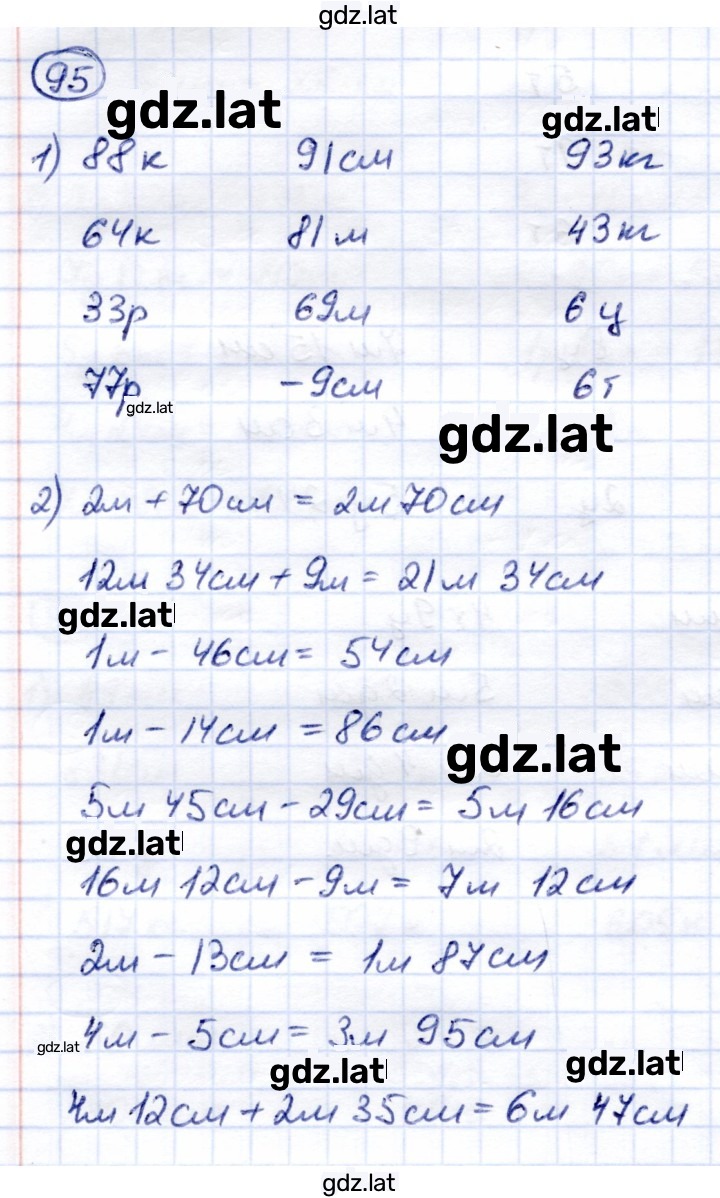 gdz.lat
95
gdz.lat gdz.lat
1) 88к 91см 93кг
64к 81м 43кг
33р 69м 6ц
77р -9см 6т
gdz.lat
gdz.lat
2) 2м + 70см = 2м 70см
12м 34см + 9м = 21м 34см
gdz.lat
1м - 46см = 54см
1м - 14см = 86см
gdz.lat
5м 45см - 29см = 5м 16см
gdz.lat
16м 12см - 9м = 7м 12см
2м - 13см = 1м 87см
gdz.lat 4м - 5см = 3м 95см
gdz.lat gdz.lat
4м 12см + 2м 35см = 6м 47см
gdz.lat